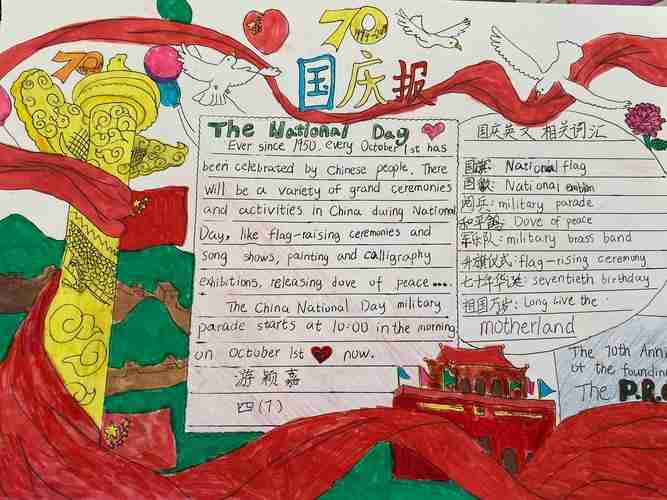 70
70
1949-2019
国庆报
The National Day
Ever since 1950, every October 1st has
been celebrated by Chinese people. There
will be a variety of grand ceremonies
and activities in China during National
Day, like flag-raising ceremonies and
song shows, painting and calligraphy
exhibitions, releasing dove of peace....
The China National Day military
parade starts at 10:00 in the morning
on October 1st now.
游颖嘉
四(7)
国庆英文 相关词汇
国旗: National flag
国徽: National emblem
阅兵: military parade
和平鸽: Dove of peace
军乐队: military brass band
升旗仪式: flag-rising ceremony
七十年华诞: seventieth birthday
祖国万岁: Long live the
motherland
The 70th Anni
of the founding
The P.R.C